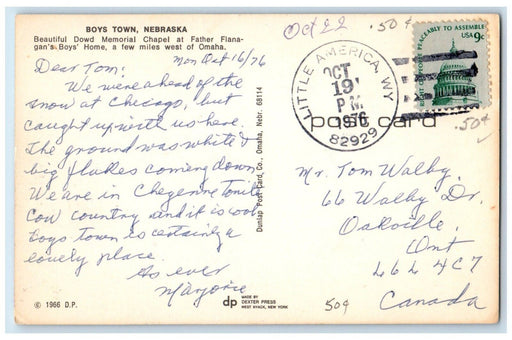 BOYS TOWN, NEBRASKA
Beautiful Dowd Memorial Chapel at Father Flana-
gan's Boys' Home, a few miles west of Omaha.
Mon Oct 16/76
Dear Tom:
We were ahead of the
snow at Chicago, but
caught up with us here.
The ground was white &
big flakes coming down.
We are in Cheyenne tonite
Cow country and it is cool
Boys town is certainly a
lovely place.
As ever
Marjorie
© 1966 D.P.
Dunlap Post Card, Co., Omaha, Nebr. 68114
dp
MADE BY
DEXTER PRESS
WEST NYACK, NEW YORK
Oct 22
.50¢
LITTLE AMERICA, WY
OCT
19
PM
1976
82929
PEACEABLY TO ASSEMBLE
USA 9c
post card
.50¢
Mr. Tom Walby,
66 Walby Dr.
Oakville,
Ont
L6L 4C7
Canada
50¢